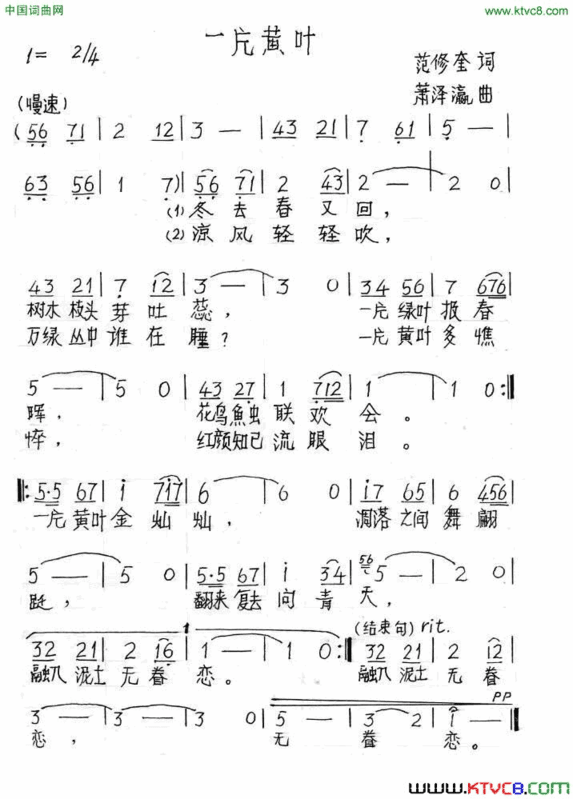 中国词曲网
www.ktvc8.com
一片黄叶
1= 2/4
范修奎 词
萧泽瀛 曲
(慢速)
(56 71 | 2 12 | 3 — | 43 21 | 7 61 | 5 — |
63 56 | 1 7) | 56 71 | 2 43 | 2 — | 2 0 |
(1) 冬去春又回，
(2) 凉风轻轻吹，
43 21 | 7 12 | 3 — | 3 0 | 34 56 | 7 676 |
树木枝头芽吐蕊， 一片绿叶报春
万绿丛中谁在睡？ 一片黄叶多憔
5 — | 5 0 | 43 27 | 1 712 | 1 — | 1 0 :||
晖， 花鸟鱼虫联欢会。
悴， 红颜知己流眼泪。
||: 5·5 67 | i 717 | 6 — | 6 0 | i7 65 | 6 456 |
一片黄叶金灿灿， 凋落之间舞翩
5 — | 5 0 | 5·5 67 | i 34 | 56 5 — | 2 0 |
跹， 翻来复去问青天，
1 (结束句) rit.
32 21 | 2 16 | 1 — | 1 0 :|| 32 21 | 2 12 |
融入泥土无眷恋。 融入泥土无眷
PP
3 — | 3 — | 3 0 | 5 — | 3 2 | i — ||
恋， 无眷恋。
www.KTVC8.com